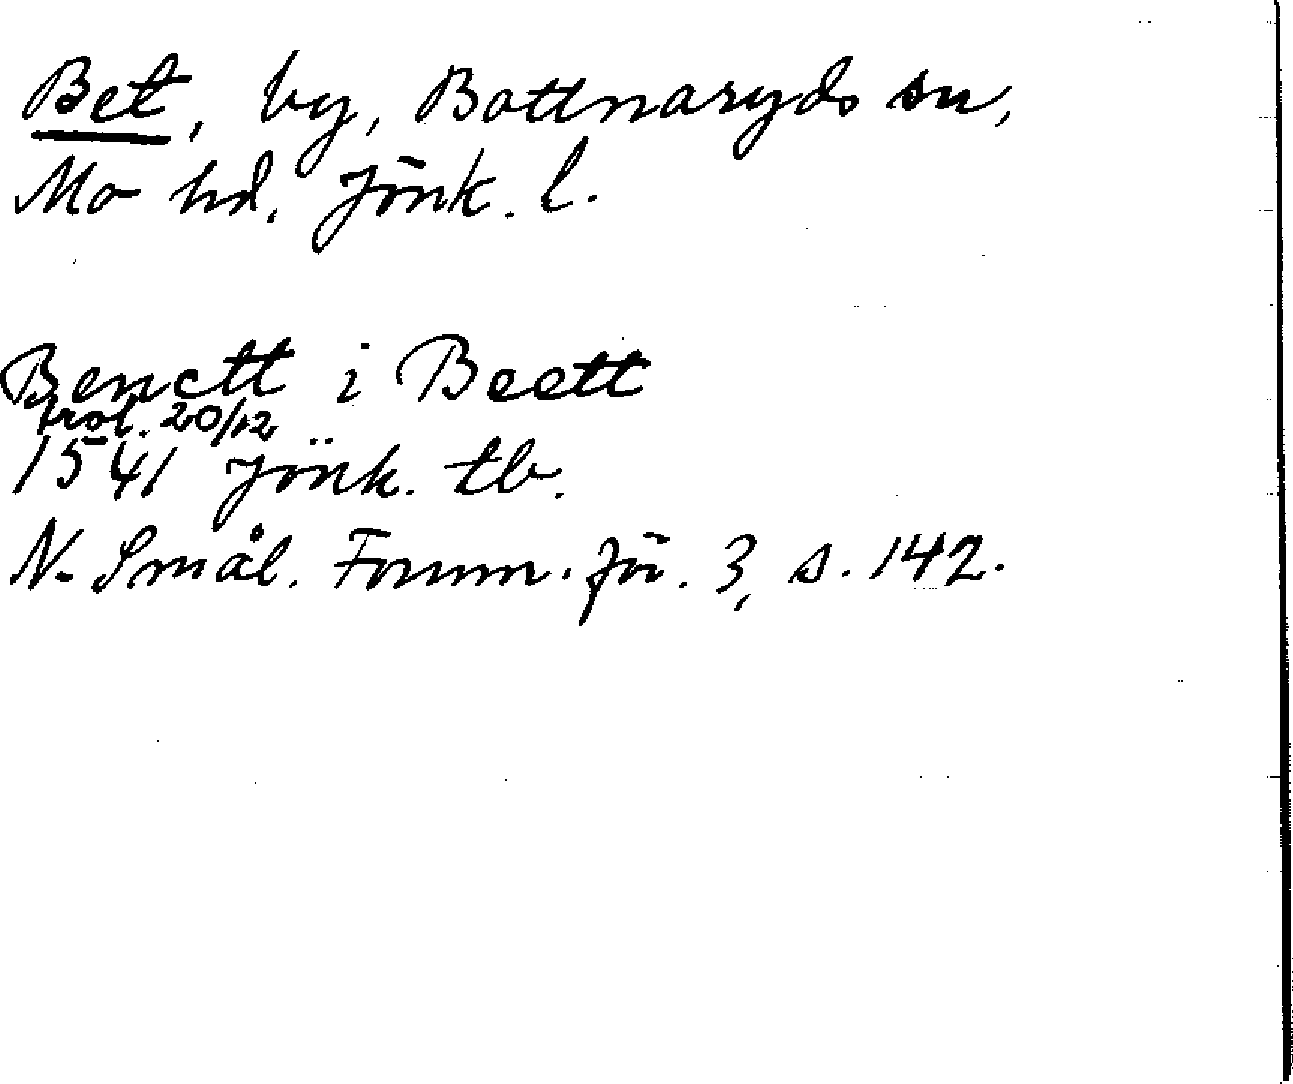 Bet, by, Bottnaryds sn,
Mo hd. Jönk. l.
Benctt i Beett
prot. 20/12
1541 Jönk. tb.
N. Smål. Fornm. för. 3, s. 142.